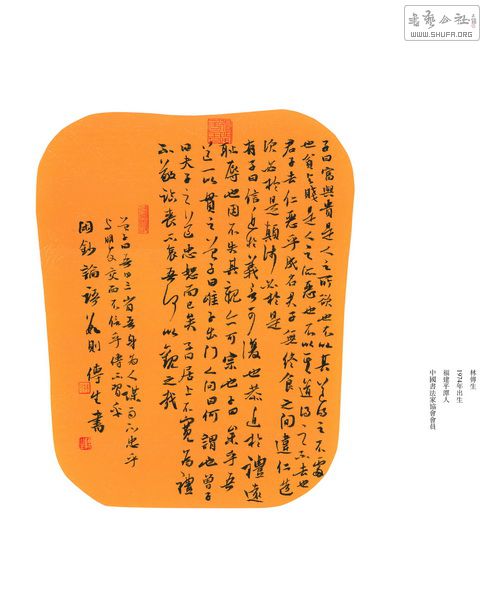 書藝公社
WWW.SHUFA.ORG
子曰富與貴是人之所欲也不以其道得之不處
也貧與賤是人之所惡也不以其道得之不去也
君子去仁惡乎成名君子無終食之間違仁造
次必於是顛沛必於是
有子曰信近於義言可復也恭近於禮遠
恥辱也因不失其親亦可宗也子曰參乎吾
道一以貫之曾子曰唯子出門人問曰何謂也曾子
曰夫子之道忠恕而已矣子曰居上不寬為禮
不敬臨喪不哀吾何以觀之哉
曾子曰吾日三省吾身為人謀而不忠乎
與朋友交而不信乎傳不習乎
鈔論語數則傳生書
林傳生
1974年出生
福建平潭人
中國書法家協會會員